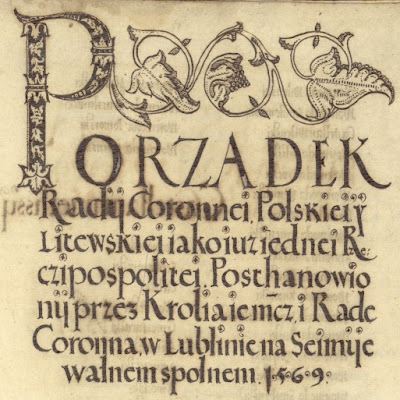 PORZADEK
Radÿ Coronnei Polskiei ÿ
Litewskiei iako iuz iednei R
czipospolitei. Posthanowio
nÿ przes Krolia ie mcz, i Rade
Coronna, w Lublinie na Seimÿe
walnem spolnem. 1·5·6·9·